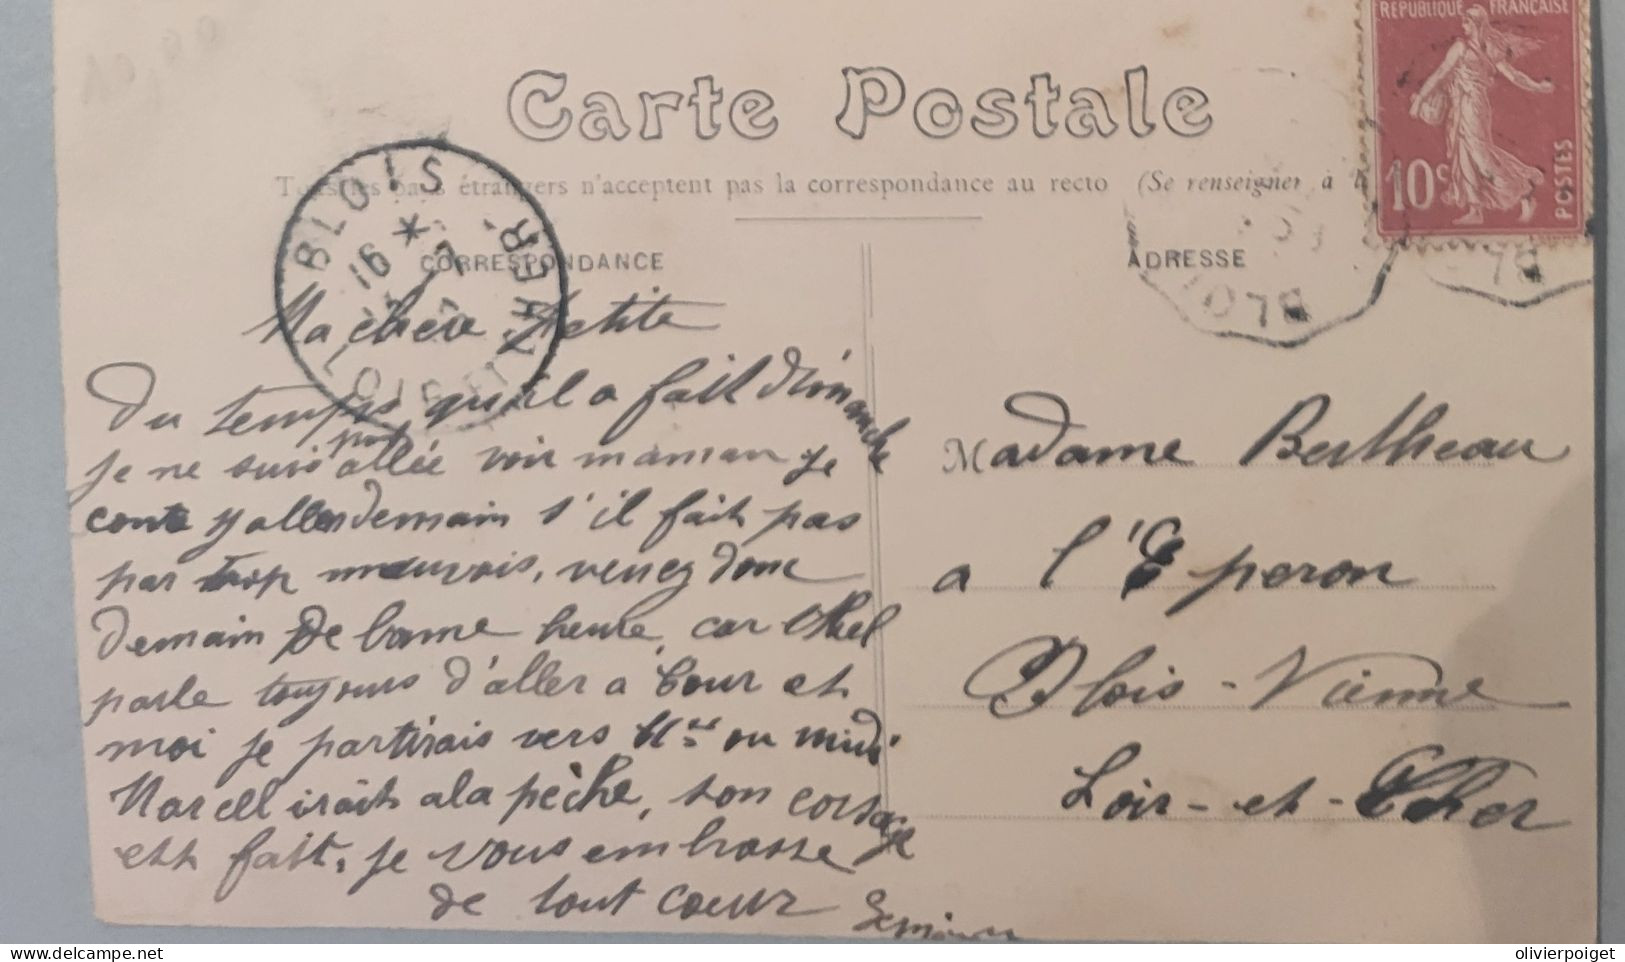 RÉPUBLIQUE FRANÇAISE
10c POSTES
Carte Postale
Tous les pays étrangers n'acceptent pas la correspondance au recto (Se renseigner à
BLOIS
16 *
LOIR-ET-CHER
BLOI
BL
CORRESPONDANCE
ADRESSE
Ma chère Petite
Du temps qu'il a fait dimanche
je ne suis pas allée voir maman je
conte y aller demain s'il fait pas
par trop mauvais, venez donc
demain de bonne heure, car
parle toujours d'aller a Cour et
moi je partirais vers 11 ou midi
Marcell irait a la pèche, son corsage
est fait, je vous embrasse
de tout coeur
Madame Bertheau
a l'Eperon
Blois-Vienne
Loir-et-Cher
olivierpoiget